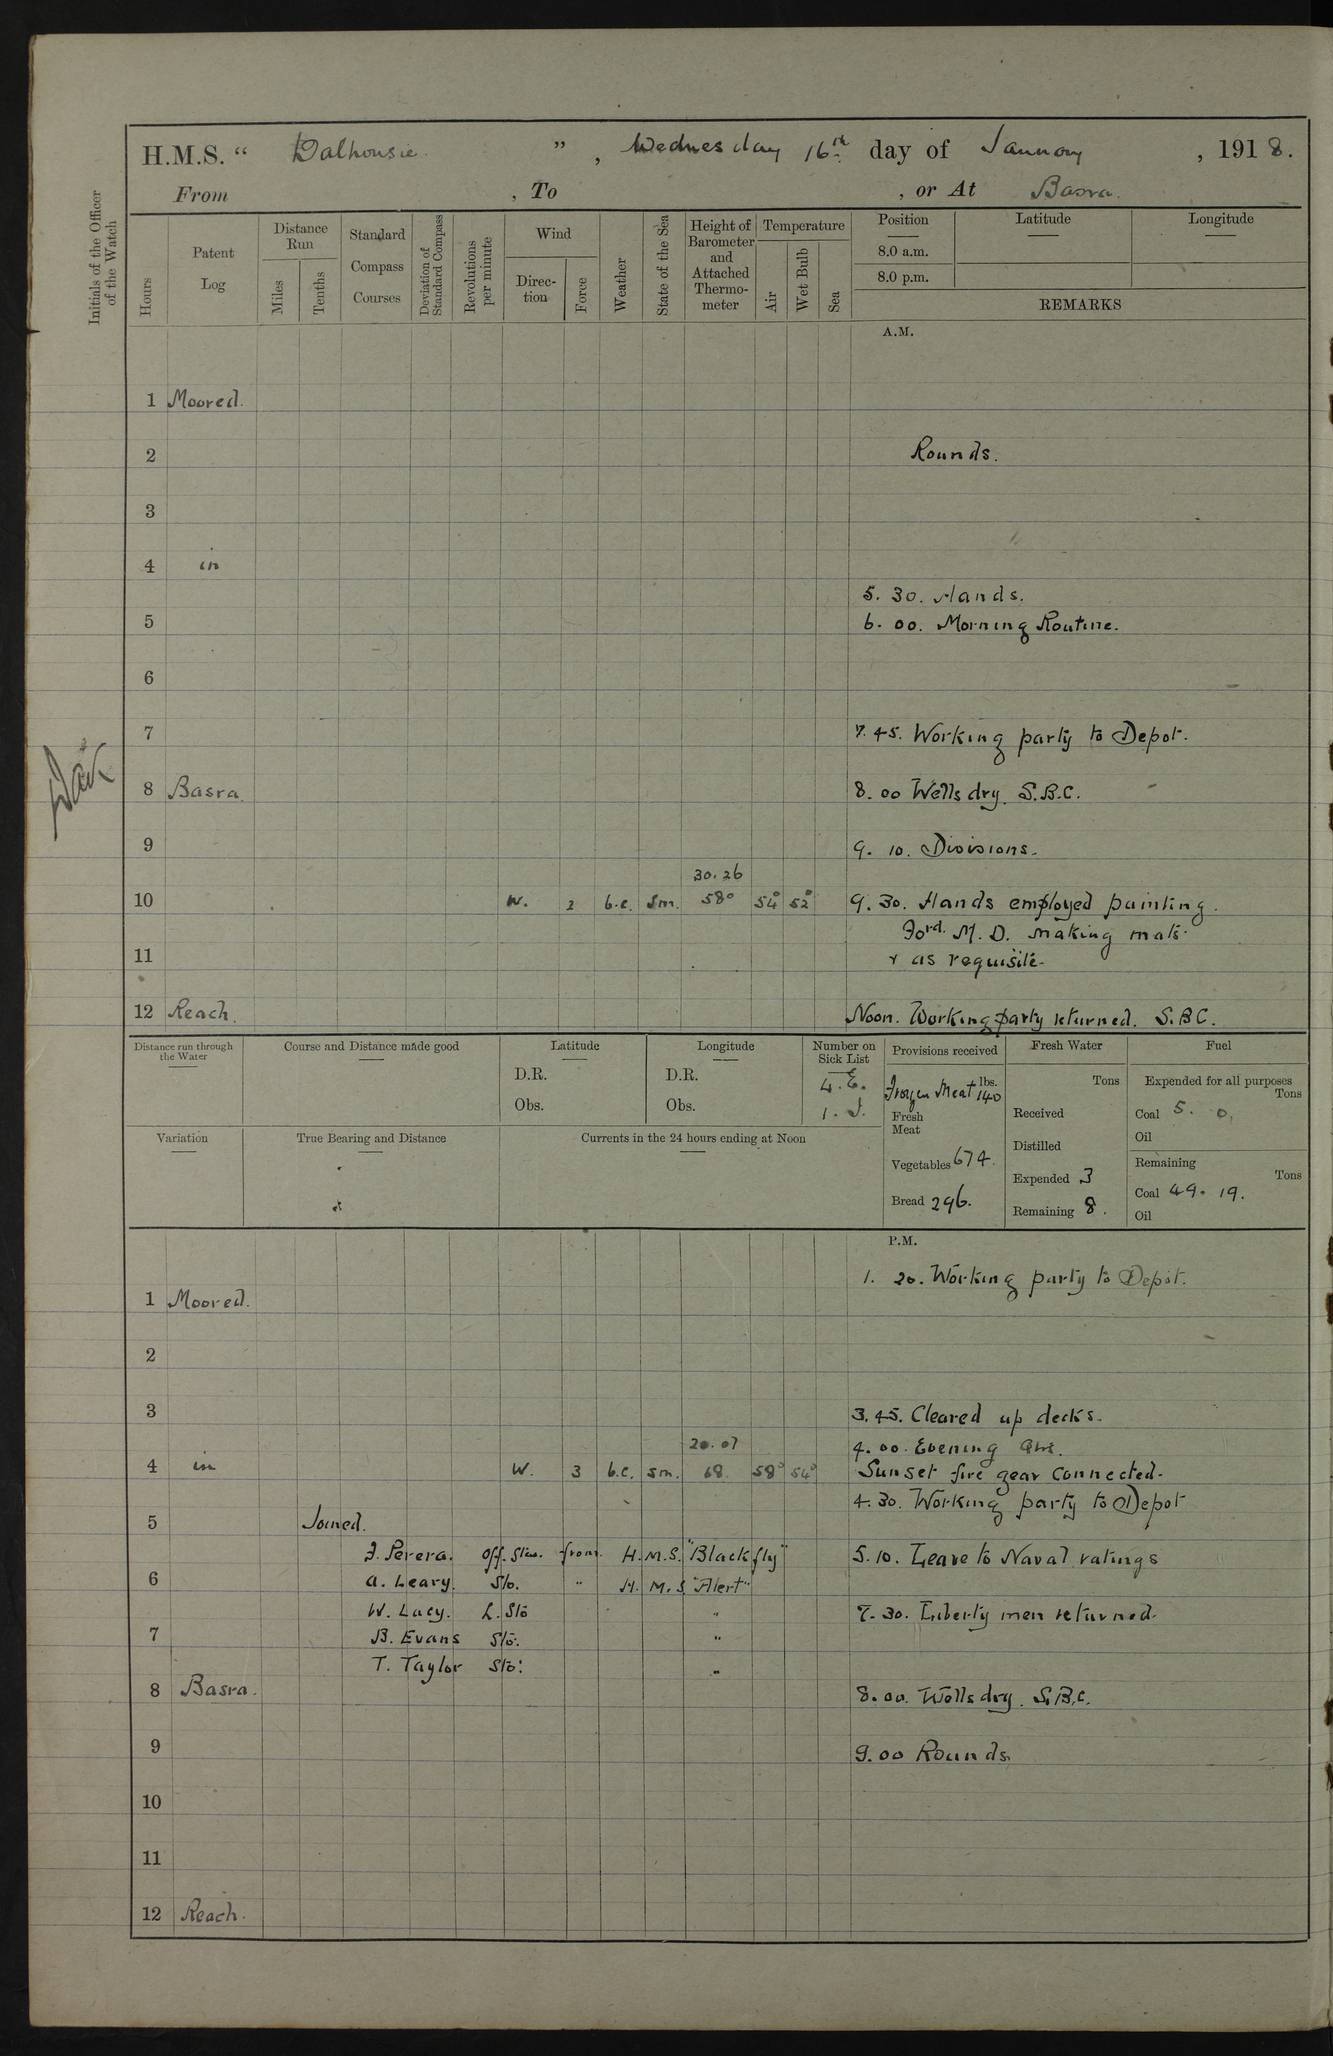 H.M.S. “ Dalhousie. ” , Wednesday 16th day of January , 1918.
From , To , or At Basra.
Initials of the Officer of the Watch
Hours
Patent Log
Distance Run
Miles
Tenths
Standard Compass Courses
Deviation of Standard Compass
Revolutions per minute
Wind
Direction
Force
Weather
State of the Sea
Height of Barometer and Attached Thermometer
Temperature
Air
Wet Bulb
Sea
Position
8.0 a.m.
8.0 p.m.
Latitude
Longitude
REMARKS
A.M.
1 Moored.
2 Rounds.
3
4 in
5. 30. Hands.
5 6. 00. Morning Routine.
6
7 7. 45. Working party to Depot.
8 Basra. 8. 00 Wells dry. S.B.C.
9 9. 10. Divisions.
30.26
10 W. 2 b.c. Sm. 58° 54° 52° 9. 30. Hands employed painting.
Ford. M. D. making mats
11 & as requisite.
12 Reach. Noon. Working party returned. S.B.C.
Distance run through the Water
Course and Distance made good
Latitude
D.R.
Obs.
Longitude
D.R.
Obs.
Number on Sick List
4. E.
1. I.
Provisions received
lbs.
Frozen Meat 140
Fresh Meat
Vegetables 674.
Bread 296.
Fresh Water
Tons
Received
Distilled
Expended 3
Remaining 8.
Fuel
Expended for all purposes
Tons
Coal 5. 0.
Oil
Remaining
Tons
Coal 49. 19.
Oil
Variation
True Bearing and Distance
Currents in the 24 hours ending at Noon
P.M.
1. 20. Working party to Depot.
1 Moored.
2
3 3. 45. Cleared up decks.
4. 00. Evening Qrs.
4 in W. 3 b.c. sm. 68. 58° 54° Sunset fire gear connected.
4. 30. Working party to Depot
5 Joined.
J. Perera. Off. Stw. from H.M.S. "Blackfly" 5. 10. Leave to Naval ratings
6 A. Leary. Sto. " H.M.S. "Alert"
W. Lacy. L. Sto " 7. 30. Liberty men returned.
7 B. Evans Sto. "
T. Taylor Sto. "
8 Basra. 8. 00. Wells dry. S.B.C.
9 9. 00 Rounds.
10
11
12 Reach.